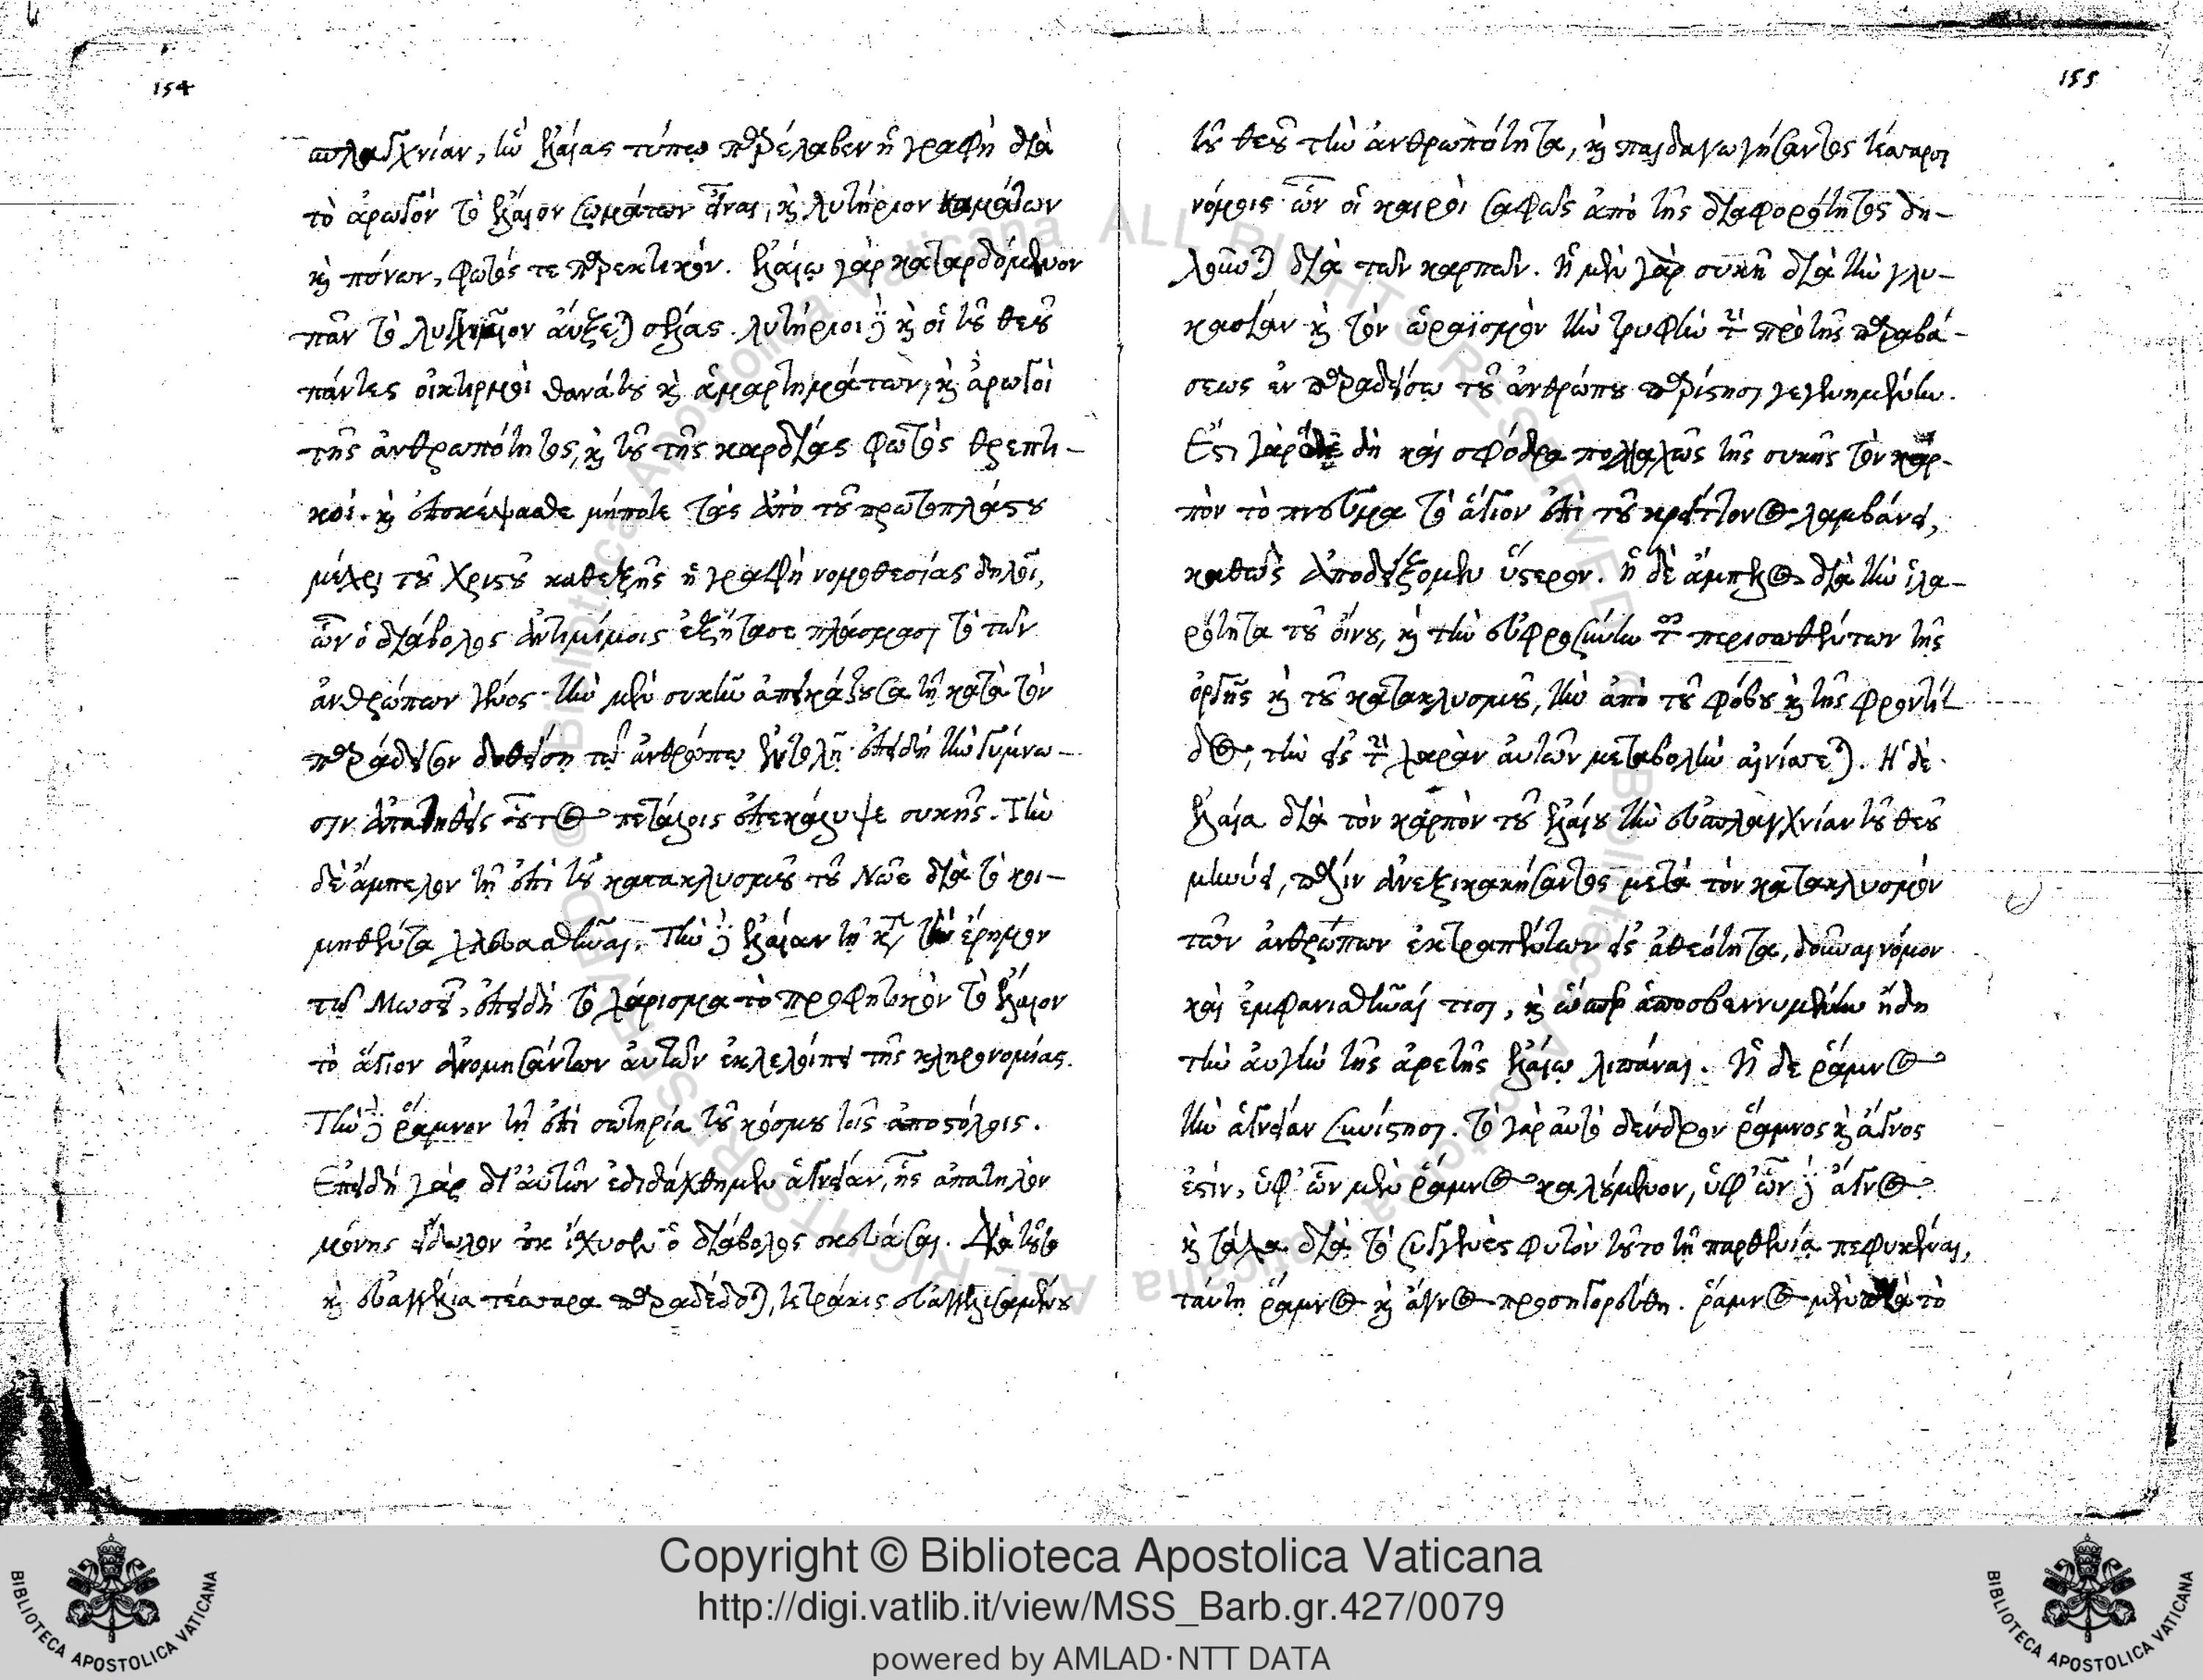 154
σπλαγχνίαν, ἣν ἐλαίας τύπῳ παρέλαβεν ἡ γραφὴ διὰ
τὸ ἀρωγὸν τὸ ἔλαιον σωμάτων εἶναι, καὶ λυτήριον καμάτων
καὶ πόνων, φωτός τε παρεκτικόν. ἐλαίῳ γὰρ καταρδόμενον
πᾶν τὸ λυχνιαῖον αὔξεται σέλας. λυτήριοι δὲ καὶ οἱ τοῦ θεοῦ
πάντες οἰκτιρμοὶ θανάτου καὶ ἁμαρτημάτων, καὶ ἀρωγοὶ
τῆς ἀνθρωπότητος, καὶ τοῦ τῆς καρδίας φωτὸς θρεπτι-
κοί. καὶ ἐπισκέψασθε μήποτε τὰς ἀπὸ τοῦ πρωτοπλάστου
μέχρι τοῦ Χριστοῦ καθεξῆς ἡ γραφὴ νομοθεσίας δηλοῖ,
ὧν ὁ διάβολος ἀντιμίμοις ἐξηπάτησε πλάσμασι τὸ τῶν
ἀνθρώπων γένος· τὴν μὲν συκῆν ἀπεικάζουσα τῇ κατὰ τὸν
παράδεισον δοθείσῃ τῷ ἀνθρώπῳ ἐντολῇ· ἐπειδὴ τὴν γύμνω-
σιν ἀπατηθεὶς οὗτος πετάλοις ἐπεκάλυψε συκῆς. Τὴν
δὲ ἄμπελον τῇ ἐπὶ τοῦ κατακλυσμοῦ τοῦ Νῶε διὰ τὸ κοι-
μηθέντα χλευασθῆναι. Τὴν δὲ ἐλαίαν τῇ κατὰ τὴν ἔρημον
τῷ Μωσεῖ, ἐπειδὴ τὸ χάρισμα τὸ προφητικὸν τὸ ἔλαιον
τὸ ἅγιον ἀνομησάντων αὐτῶν ἐκλελοίπει τῆς κληρονομίας.
Τὴν δὲ ῥάμνον τῇ ἐπὶ σωτηρίᾳ τοῦ κόσμου τοῖς ἀποστόλοις.
Ἐπειδὴ γὰρ δι' αὐτῶν ἐδιδάχθημεν ἁγνείαν, ἧς ἀπατηλὸν
μόνης εἴδωλον οὐκ ἴσχυσεν ὁ διάβολος σκευάσαι. Διὰ τοῦτο
καὶ εὐαγγέλια τέσσαρα παραδέδοται, τετράκις εὐαγγελισαμένου
155
τοῦ θεοῦ τὴν ἀνθρωπότητα, καὶ παιδαγωγήσαντος τέσσαρσι
νόμοις· ὧν οἱ καιροὶ σαφῶς ἀπὸ τῆς διαφορότητος δη-
λοῦνται διὰ τῶν καρπῶν. Ἡ μὲν γὰρ συκῆ διὰ τὴν γλυ-
κασίαν καὶ τὸν ὡραϊσμὸν τὴν τρυφὴν τὴν πρὸ τῆς παραβά-
σεως ἐν παραδείσῳ τοῦ ἀνθρώπου παρίστησι γεγενημένην.
Ἔστι γὰρ δὴ καὶ σφόδρα πολλαχῶς τῆς συκῆς τὸν καρ-
πὸν τὸ πνεῦμα τὸ ἅγιον ἐπὶ τοῦ κρείττονος λαμβάνει,
καθὼς ἀποδείξομεν ὕστερον. ἡ δὲ ἄμπελος διὰ τὴν ἱλα-
ρότητα τοῦ οἴνου, καὶ τὴν εὐφροσύνην τῶν περισωθέντων τῆς
ὀργῆς καὶ τοῦ κατακλυσμοῦ, τὴν ἀπὸ τοῦ φόβου καὶ τῆς φροντί-
δος, τὴν εἰς τὴν χαρὰν αὐτῶν μεταβολὴν αἰνίσσεται. Ἡ δὲ
ἐλαία διὰ τὸν καρπὸν τοῦ ἐλαίου τὴν εὐσπλαγχνίαν τοῦ θεοῦ
μηνύει, πάλιν ἀνεξικακήσαντος μετὰ τὸν κατακλυσμὸν
τῶν ἀνθρώπων ἐκτραπέντων εἰς ἀθεότητα, δοῦναι νόμον
καὶ ἐμφανισθῆναί τισι, καὶ ὥσπερ ἀποσβεννυμένην ἤδη
τὴν αὐγὴν τῆς ἀρετῆς ἐλαίῳ λιπάναι. Ἡ δὲ ῥάμνος
τὴν ἁγνείαν συνίστησι. Τὸ γὰρ αὐτὸ δένδρον ῥάμνος καὶ ἄγνος
ἐστίν, ὑφ' ὧν μὲν ῥάμνος καλούμενον, ὑφ' ὧν δὲ ἄγνος
καὶ τάχα διὰ τὸ συγγενὲς φυτὸν τοῦτο τῇ παρθενίᾳ πεφυκέναι,
ταύτῃ ῥάμνος καὶ ἄγνος προσηγορεύθη. ῥάμνος μὲν διὰ τὸ
Copyright © Biblioteca Apostolica Vaticana
http://digi.vatlib.it/view/MSS_Barb.gr.427/0079
powered by AMLAD·NTT DATA
BIBLIOTECA APOSTOLICA VATICANA
BIBLIOTECA APOSTOLICA VATICANA